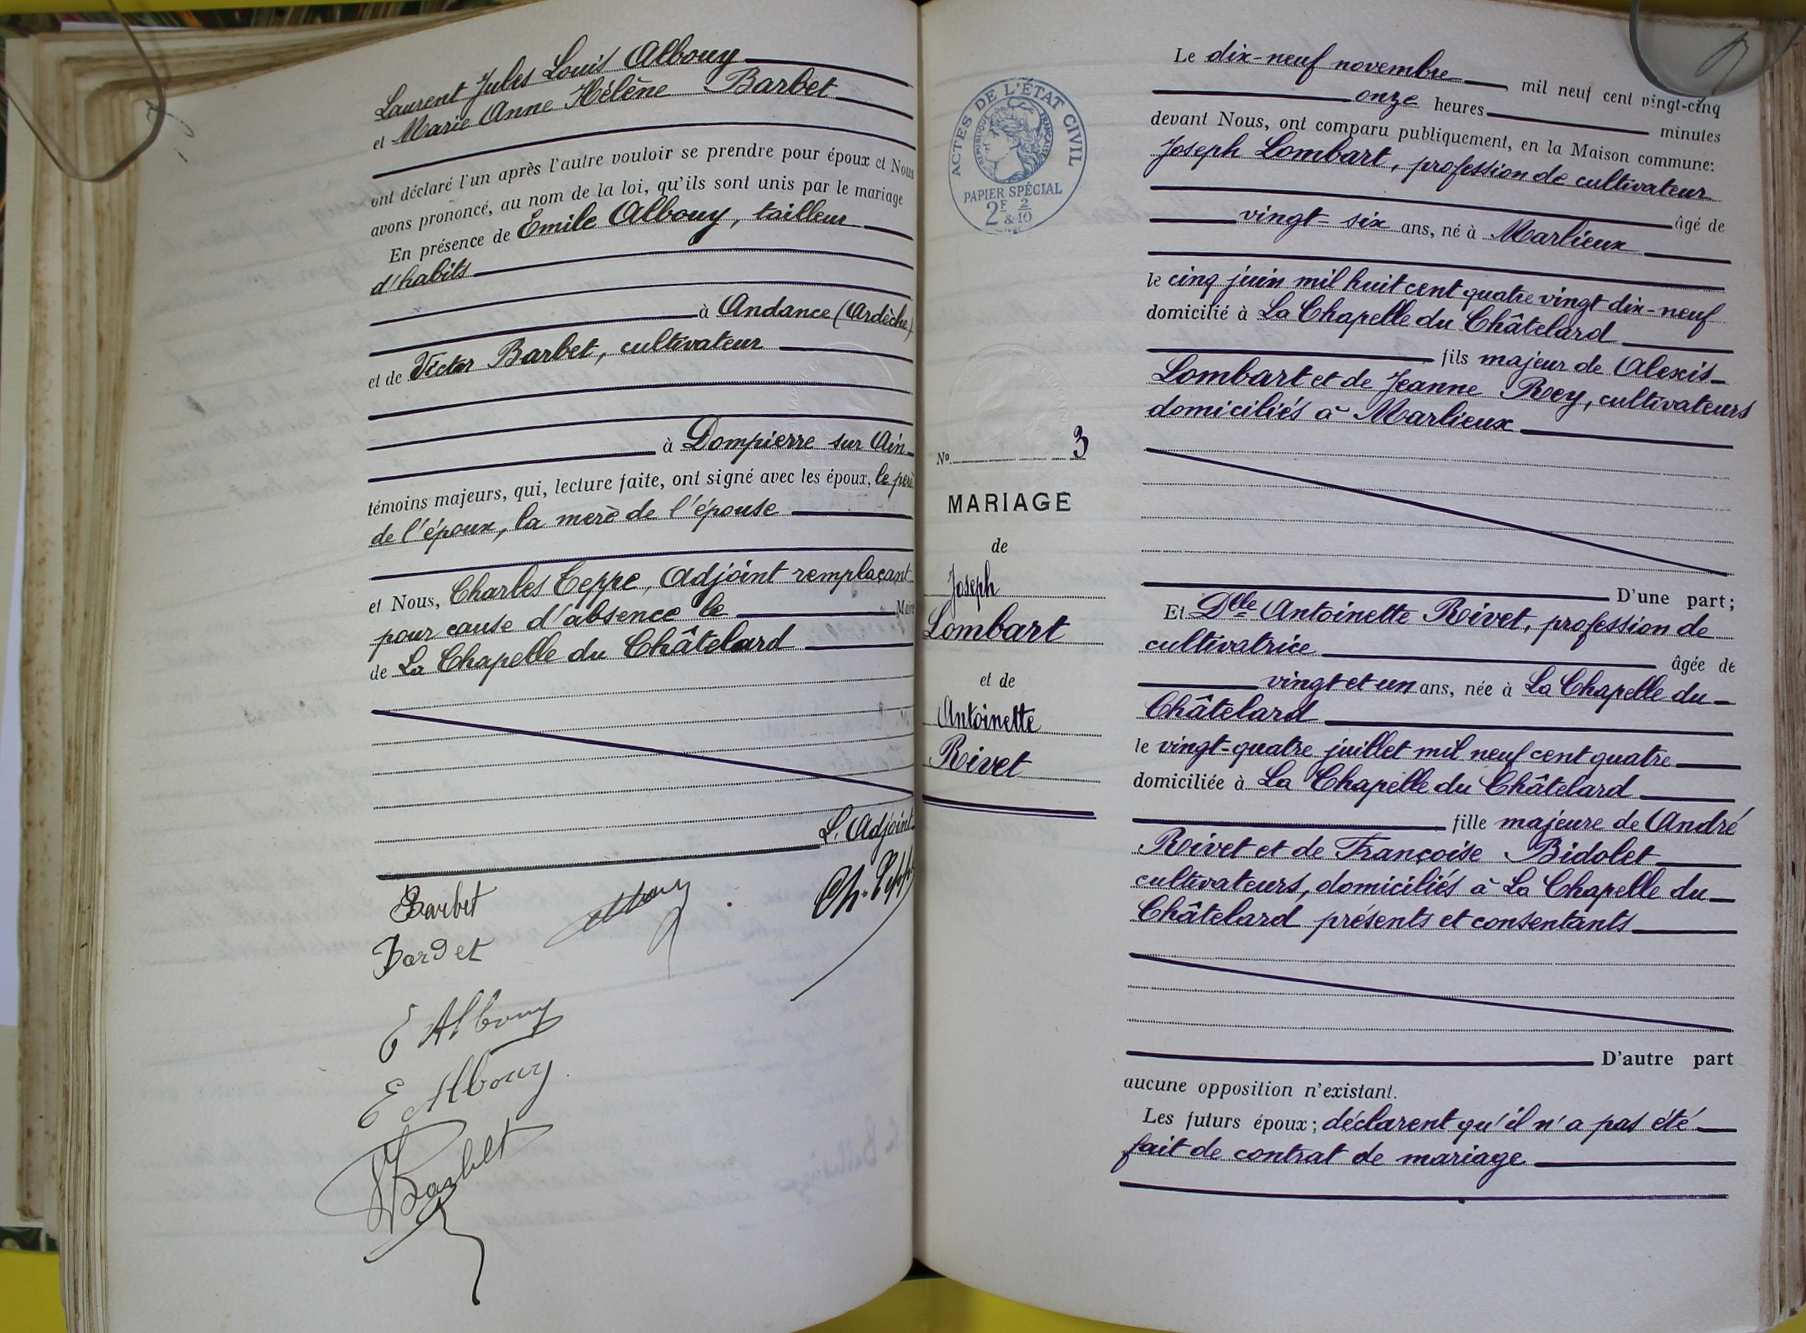 Laurent Jules Louis Albouy
et Marie Anne Hélène Barbet
ont déclaré l'un après l'autre vouloir se prendre pour époux et Nous
avons prononcé, au nom de la loi, qu'ils sont unis par le mariage
En présence de Emile Albouy, tailleur
d'habits
à Andance (Ardèche)
et de Victor Barbet, cultivateur
à Dompierre sur Ain
témoins majeurs, qui, lecture faite, ont signé avec les époux, le père
de l'époux, la mère de l'épouse
et Nous, Charles Teppe, Adjoint remplaçant
pour cause d'absence le Maire
de La Chapelle du Châtelard
L. Adjoint
Barbet
Albouy
Ch. Teppe
Bardet
E Albouy
E Albouy
V Barbet
ACTES DE L'ÉTAT CIVIL
RÉPUBLIQUE FRANÇAISE
PAPIER SPÉCIAL
2F 2
& 10
No 3
MARIAGE
de
Joseph
Lombart
et de
Antoinette
Rivet
Le dix-neuf novembre mil neuf cent vingt-cinq
onze heures minutes
devant Nous, ont comparu publiquement, en la Maison commune:
Joseph Lombart, profession de cultivateur
âgé de
vingt-six ans, né à Marlieux
le cinq juin mil huit cent quatre vingt dix-neuf
domicilié à La Chapelle du Châtelard
fils majeur de Alexis
Lombart et de Jeanne Rey, cultivateurs
domiciliés à Marlieux
D'une part;
Et Dlle Antoinette Rivet, profession de
cultivatrice
âgée de
vingt et un ans, née à La Chapelle du
Châtelard
le vingt-quatre juillet mil neuf cent quatre
domiciliée à La Chapelle du Châtelard
fille majeure de André
Rivet et de Françoise Bidolet
cultivateurs, domiciliés à La Chapelle du
Châtelard présents et consentants
D'autre part
aucune opposition n'existant.
Les futurs époux; déclarent qu'il n'a pas été
fait de contrat de mariage